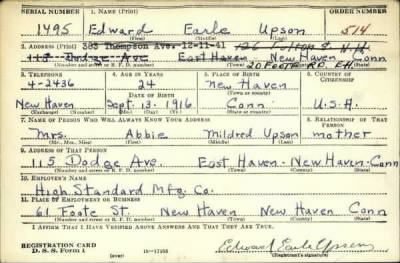 SERIAL NUMBER 1. NAME (Print) ORDER NUMBER
1495 Edward Earle Upson 514
(First) (Middle) (Last)
2. ADDRESS (Print) 385 Thompson Ave. 12-11-41 126 N. H.
115 Dodge Ave East Haven New Haven Conn
20 FOOTE RD. E.H.
(Number and street or R. F. D. number) (Town) (County) (State)
3. TELEPHONE 4. AGE IN YEARS 5. PLACE OF BIRTH 6. COUNTRY OF CITIZENSHIP
4-2436 24 New Haven
DATE OF BIRTH (Town or county)
New Haven Sept. 13. 1916 Conn U.S.A.
(Exchange) (Number) (Mo.) (Day) (Yr.) (State or country)
7. NAME OF PERSON WHO WILL ALWAYS KNOW YOUR ADDRESS 8. RELATIONSHIP OF THAT PERSON
Mrs. Abbie Mildred Upson mother
(Mr., Mrs., Miss) (First) (Middle) (Last)
9. ADDRESS OF THAT PERSON
115 Dodge Ave. East Haven - New Haven - Conn
(Number and street or R. F. D. number) (Town) (County) (State)
10. EMPLOYER'S NAME
High Standard Mfg. Co.
11. PLACE OF EMPLOYMENT OR BUSINESS
61 Foote St. New Haven New Haven Conn
(Number and street or R. F. D. number) (Town) (County) (State)
I AFFIRM THAT I HAVE VERIFIED ABOVE ANSWERS AND THAT THEY ARE TRUE.
REGISTRATION CARD
D. S. S. Form 1 (over) Edward Earle Upson
(Registrant's signature)